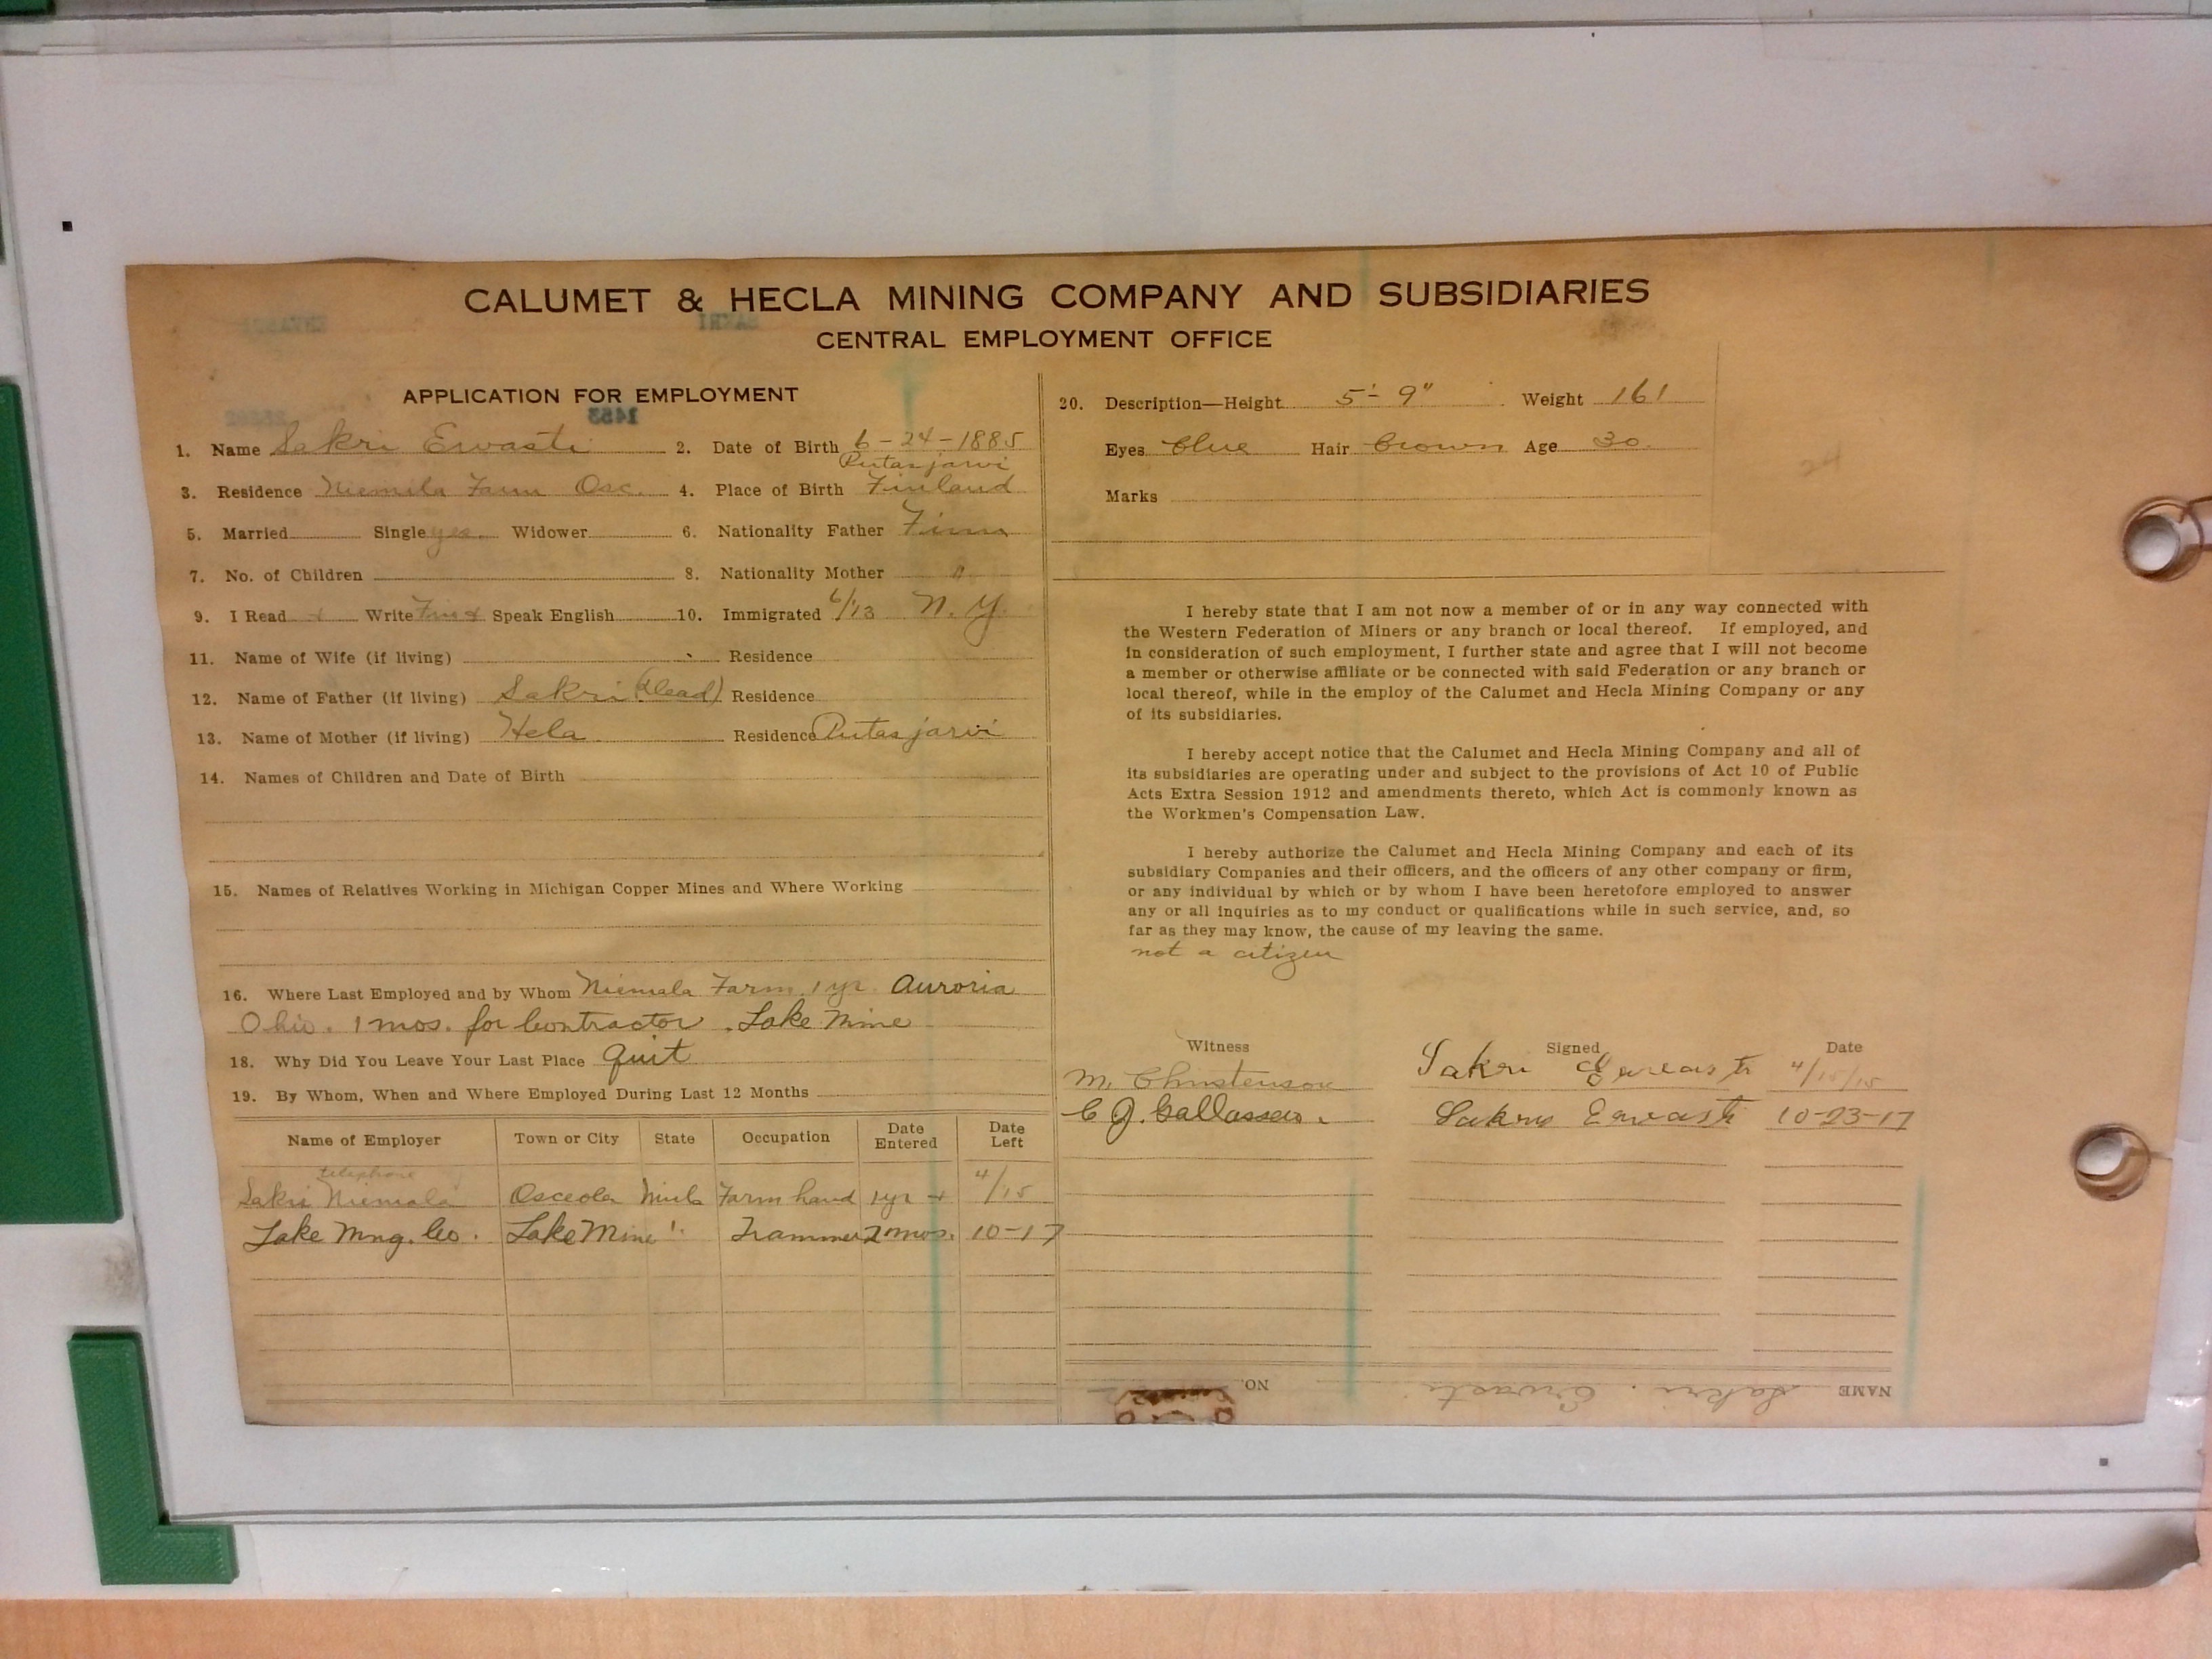 CALUMET & HECLA MINING COMPANY AND SUBSIDIARIES
CENTRAL EMPLOYMENT OFFICE
APPLICATION FOR EMPLOYMENT
1453
1. Name Sakri Erwasti 2. Date of Birth 6-24-1885
Putasjarvi
3. Residence Niemila Farm Osc. 4. Place of Birth Finland
5. Married Single yes. Widower 6. Nationality Father Finn
7. No. of Children 8. Nationality Mother "
9. I Read Write Finn Speak English 10. Immigrated 6/13 N. Y.
11. Name of Wife (if living) Residence
12. Name of Father (if living) Sakri (dead) Residence
13. Name of Mother (if living) Hela Residence Putasjarvi
14. Names of Children and Date of Birth
15. Names of Relatives Working in Michigan Copper Mines and Where Working
16. Where Last Employed and by Whom Niemala Farm. 1 yr. Auroria
Ohio. 1 mos. for Contractor. Lake Mine
18. Why Did You Leave Your Last Place Quit
19. By Whom, When and Where Employed During Last 12 Months
Name of Employer Town or City State Occupation Date Entered Date Left
telephone
Sakri Niemala Osceola Mich Farm hand 1 yr + 4/15
Lake Mng. Co. Lake Mine " Trammer 2 mos. 10-17
20. Description—Height 5'-9" Weight 161
Eyes blue Hair brown Age 30
Marks
24
I hereby state that I am not now a member of or in any way connected with
the Western Federation of Miners or any branch or local thereof. If employed, and
in consideration of such employment, I further state and agree that I will not become
a member or otherwise affiliate or be connected with said Federation or any branch or
local thereof, while in the employ of the Calumet and Hecla Mining Company or any
of its subsidiaries.
I hereby accept notice that the Calumet and Hecla Mining Company and all of
its subsidiaries are operating under and subject to the provisions of Act 10 of Public
Acts Extra Session 1912 and amendments thereto, which Act is commonly known as
the Workmen's Compensation Law.
I hereby authorize the Calumet and Hecla Mining Company and each of its
subsidiary Companies and their officers, and the officers of any other company or firm,
or any individual by which or by whom I have been heretofore employed to answer
any or all inquiries as to my conduct or qualifications while in such service, and, so
far as they may know, the cause of my leaving the same.
not a citizen
Witness Signed Date
M. Christenson Sakri 4/15/15
C. J. Sakri Erwasti 10-23-17
NAME Sakri. Erwasti NO.